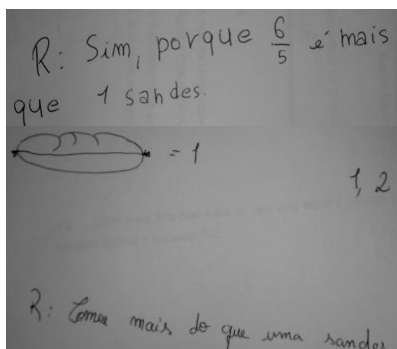 R: Sim, porque 6/5 é mais
que 1 sandes.
= 1
1,2
R: Comeu mais do que uma sandes